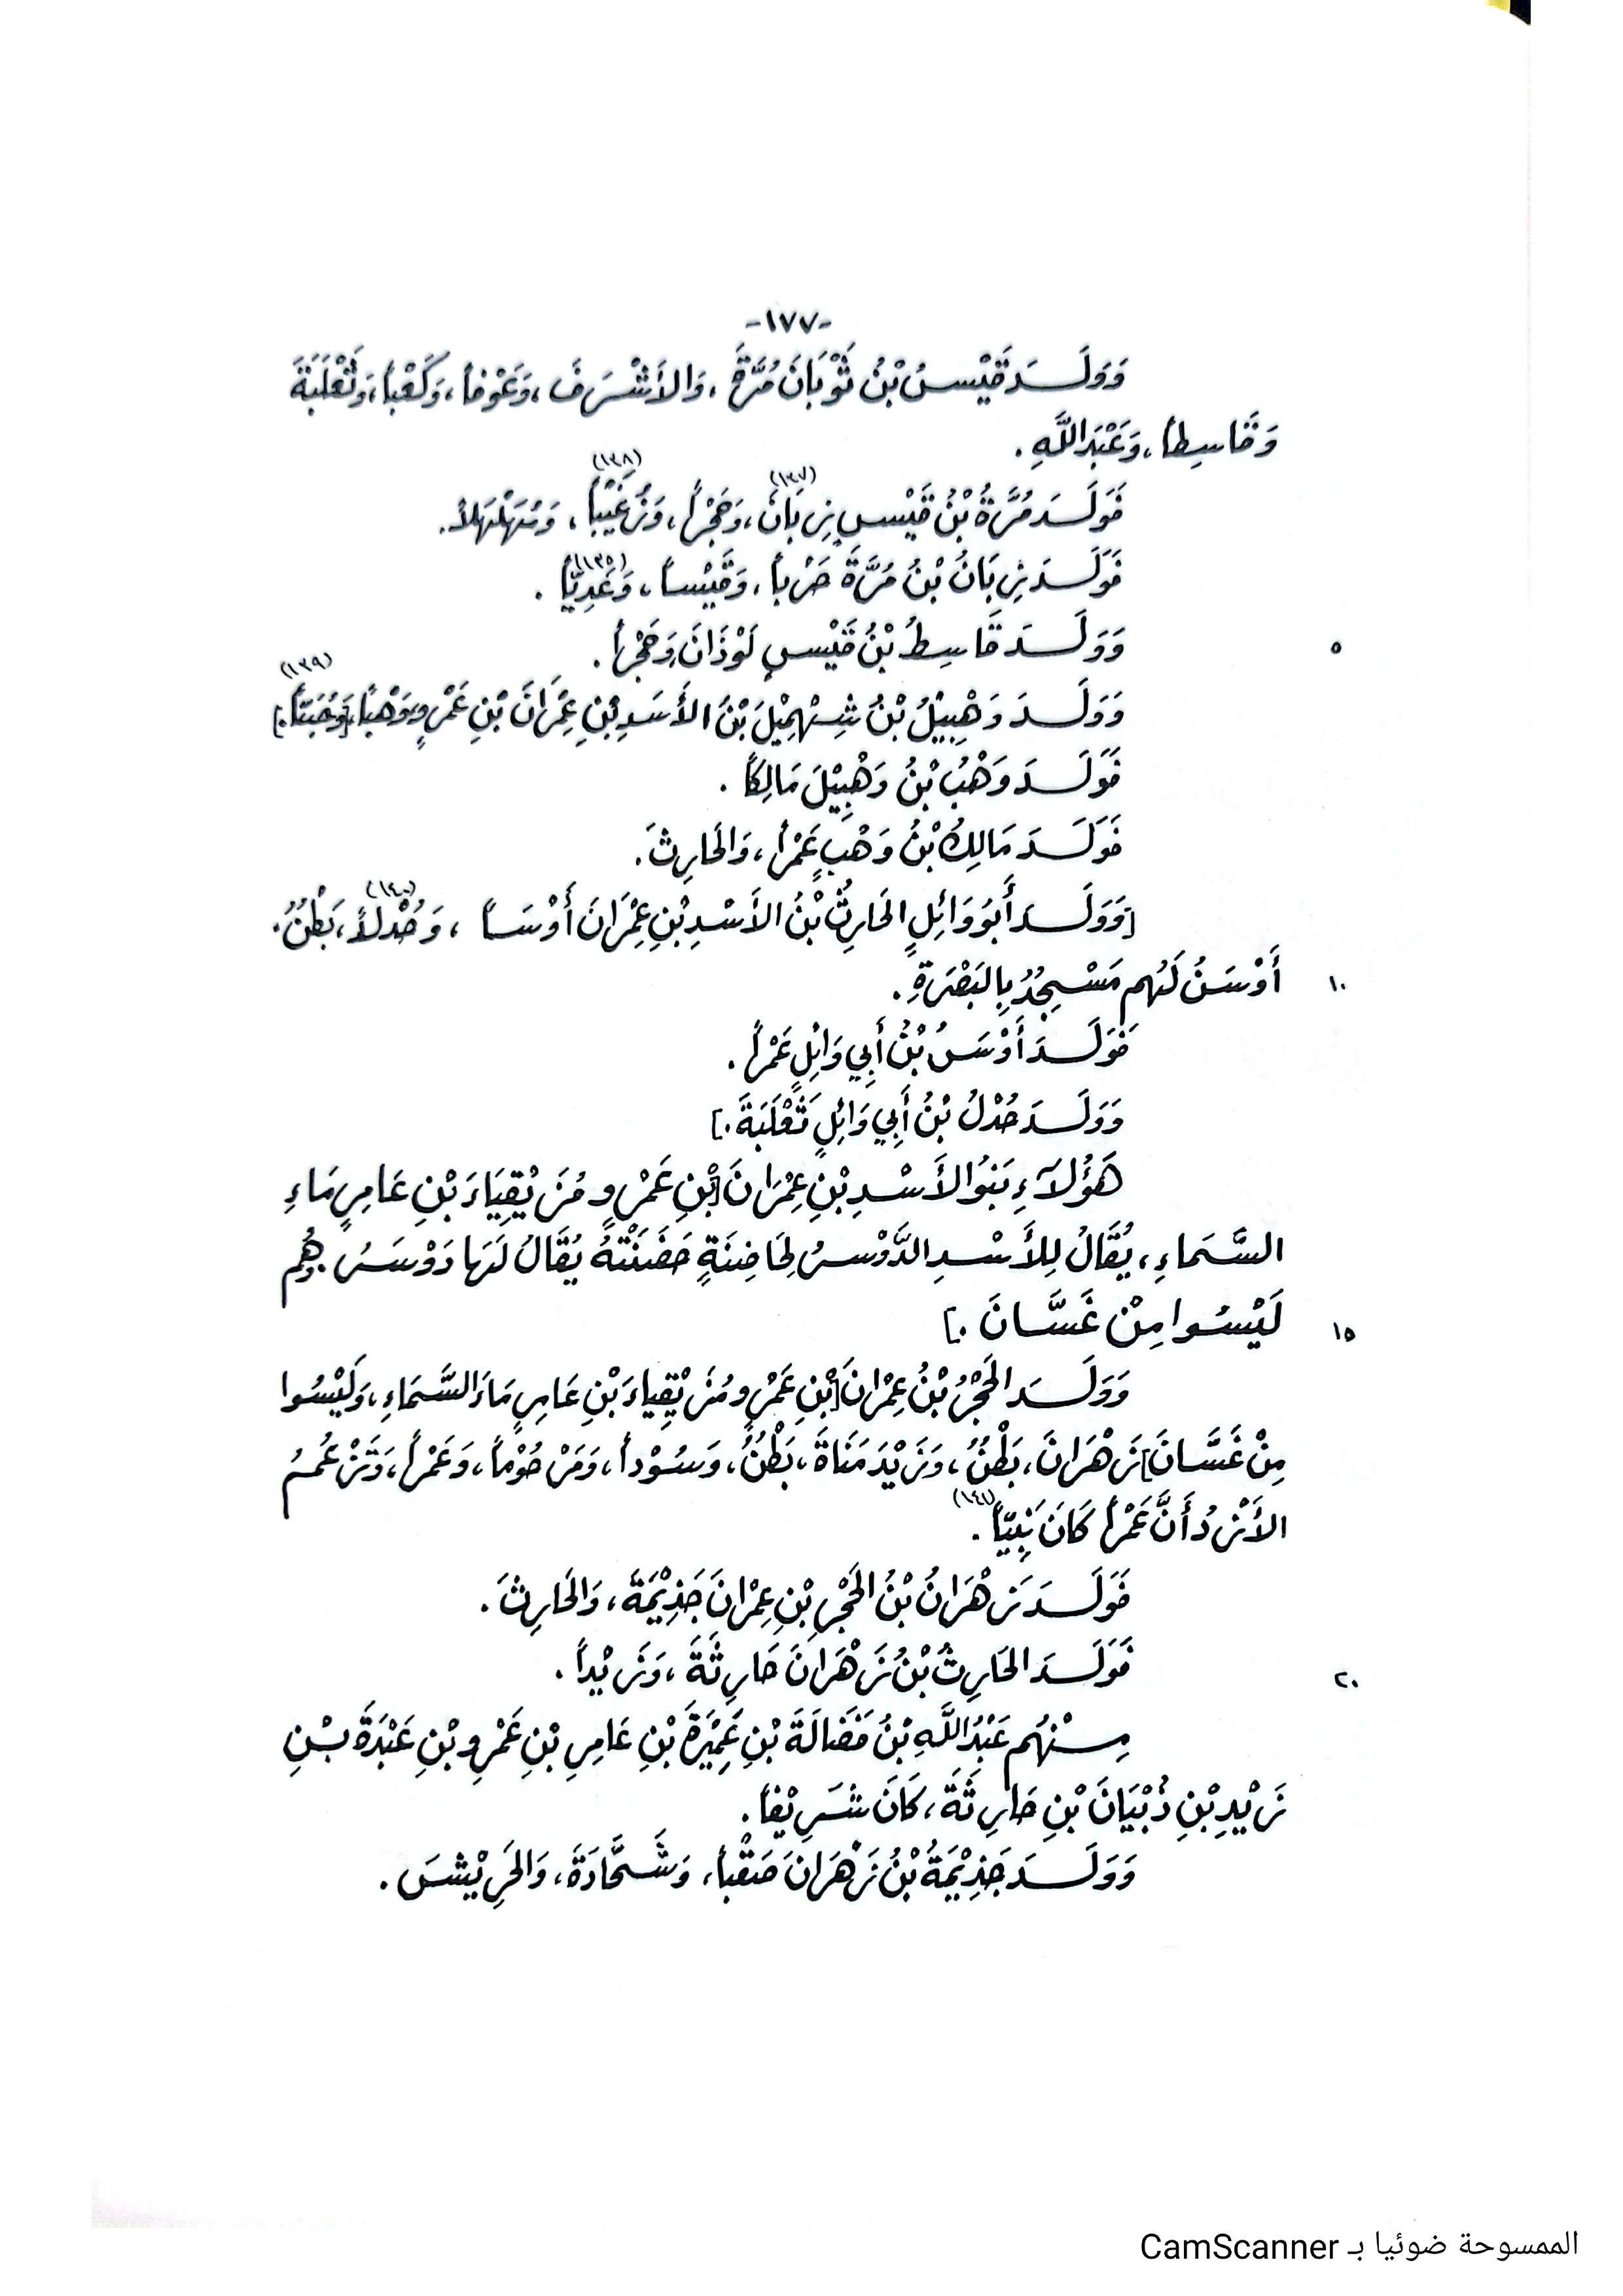 -١٧٧-
وَوَلَـــدَ قَيْسُ بْنُ ثَوْبَانَ مُرَّةَ، وَالأَشْرَفَ، وَعَوْفاً، وَكَعْباً، وَثَعْلَبَةَ
وَقَاسِطاً، وَعَبْدَ اللَّهِ.
فَوَلَـــدَ مُرَّةُ بْنُ قَيْسٍ زِبَانَ(١٣٧)، وَحَجْراً، وَزُغَيْباً(١٣٨)، وَمُهَلْهِلاً.
فَوَلَـــدَ زِبَانُ بْنُ مُرَّةَ حَرْباً، وَقَيْساً، وَعَدِيّاً(١٣٥).
٥ وَوَلَـــدَ قَاسِطُ بْنُ قَيْسٍ لَوْذَانَ وَحَجْراً.
وَوَلَـــدَ وَهْبِيْلُ بْنُ شِهْمِيْلَ بْنَ الأَسَدِ بْنِ عِمْرَانَ بْنِ عَمْرٍو وَهْباً [وَحُبَيّاً(١٣٩).]
فَوَلَـــدَ وَهْبُ بْنُ وَهْبِيْلَ مَالِكاً.
فَوَلَـــدَ مَالِكُ بْنُ وَهْبٍ عَمْراً، وَالحَارِثَ.
[وَوَلَـــدَ أَبُو وَائِلٍ الحَارِثُ بْنُ الأَسْدِ بْنِ عِمْرَانَ أَوْسَـاً، وَحُدْلاً(١٤٠)، بَطْنٌ.
١٠ أَوْسَنُ لَهُم مَسْجِدٌ بِالبَصْرَةِ.
فَوَلَـــدَ أَوْسَنُ بْنُ أَبِي وَائِلٍ عَمْراً.
وَوَلَـــدَ حُدْلُ بْنُ أَبِي وَائِلٍ ثَعْلَبَةَ.]
هَؤُلآَءِ بَنُو الأَسْدِ بْنِ عِمْرَانَ [بْنِ عَمْرٍو مُزَيْقِيَاءَ بْنِ عَامِرٍ مَاءِ
السَّمَاءِ، يُقَالُ لِلأَسْدِ الدَّوْسَرُ لِحَاضِنَةٍ حَضَنَتْهُ يُقَالُ لَهَا دَوْسَرُ. وَهُم
١٥ لَيْسُوا مِنْ غَسَّانَ.]
وَوَلَـــدَ الحَجْرُ بْنُ عِمْرَانَ [بْنِ عَمْرٍو مُزَيْقِيَاءَ بْنِ عَامِرٍ مَاءَ السَّمَاءِ، وَلَيْسُوا
مِنْ غَسَّانَ] زَهْرَانَ، بَطْنٌ، وَزَيْدَ مَنَاةَ، بَطْنٌ، وَسُوْداً، وَمَرْحُوْماً، وَعَمْراً، وَتَزْعُمُ
الأَزْدُ أَنَّ عَمْراً كَانَ نَبِيّاً(١٤١).
فَوَلَـــدَ زَهْرَانُ بْنُ الحَجْرِ بْنِ عِمْرَانَ جَذِيْمَةَ، وَالحَارِثَ.
٢٠ فَوَلَـــدَ الحَارِثُ بْنُ زَهْرَانَ حَارِثَةَ، وَزَيْداً.
مِـــنْهُم عَبْدُ اللَّهِ بْنُ فَضَالَةَ بْنِ عَمِيْرَةَ بْنِ عَامِرِ بْنِ عَمْرِو بْنِ عَبْدَةَ بْـنِ
زَيْدِ بْنِ ذُبْيَانَ بْنِ حَارِثَةَ، كَانَ شَرِيْفاً.
وَوَلَـــدَ جَذِيْمَةُ بْنُ زَهْرَانَ صَقْباً، وَشَحَّاذَةَ، وَالحَرِيْشَ.
الممسوحة ضوئيا بـ CamScanner